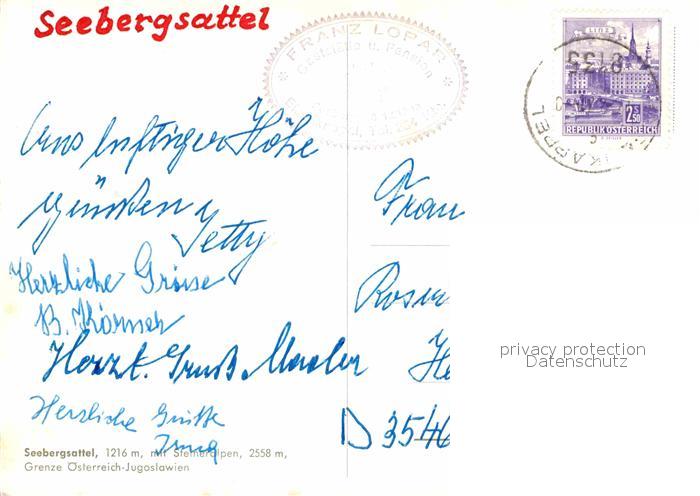 Seebergsattel
FRANZ LOPAR
Gaststätte u. Pension
LINZ
2.50
REPUBLIK ÖSTERREICH
KAPPEL
Aus luftiger Höhe
grüßen
Jetty
Herzliche Grüsse
B. Körner
Herzl. Gruß
Herzliche Grüße
Frau
Rosen
He
D 3546
privacy protection
Datenschutz
Seebergsattel, 1216 m, mit Steineralpen, 2558 m,
Grenze Österreich-Jugoslawien